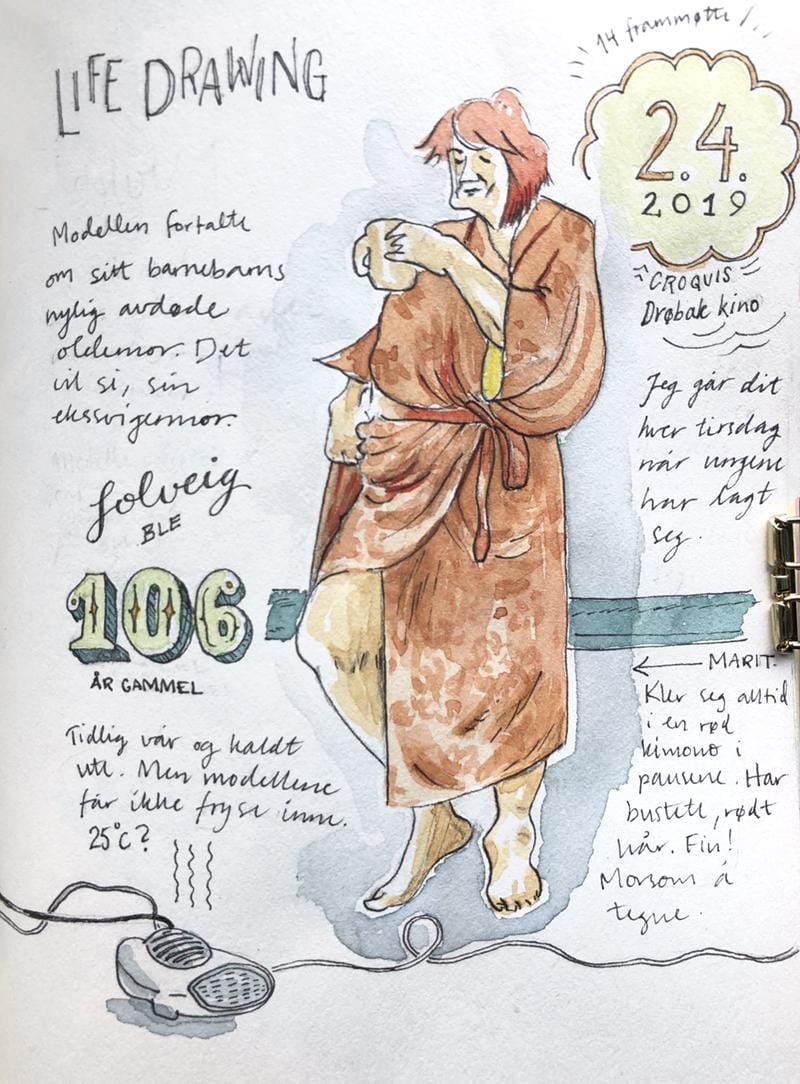 LIFE DRAWING
14 frammøtte
2.4.
2019
CROQUIS
Drøbak kino
Modellen fortalte
om sitt barnebarns
nylig avdøde
oldemor. Det
vil si, sin
ekssvigermor.
Solveig
BLE
106
ÅR GAMMEL
Tidlig vår og kaldt
ute. Men modellene
får ikke fryse inne.
25°C?
Jeg går dit
hver tirsdag
når ungene
har lagt
seg.
← MARIT.
Kler seg alltid
i en rød
kimono i
pausene. Har
bustete, rødt
hår. Fin!
Morsom å
tegne.